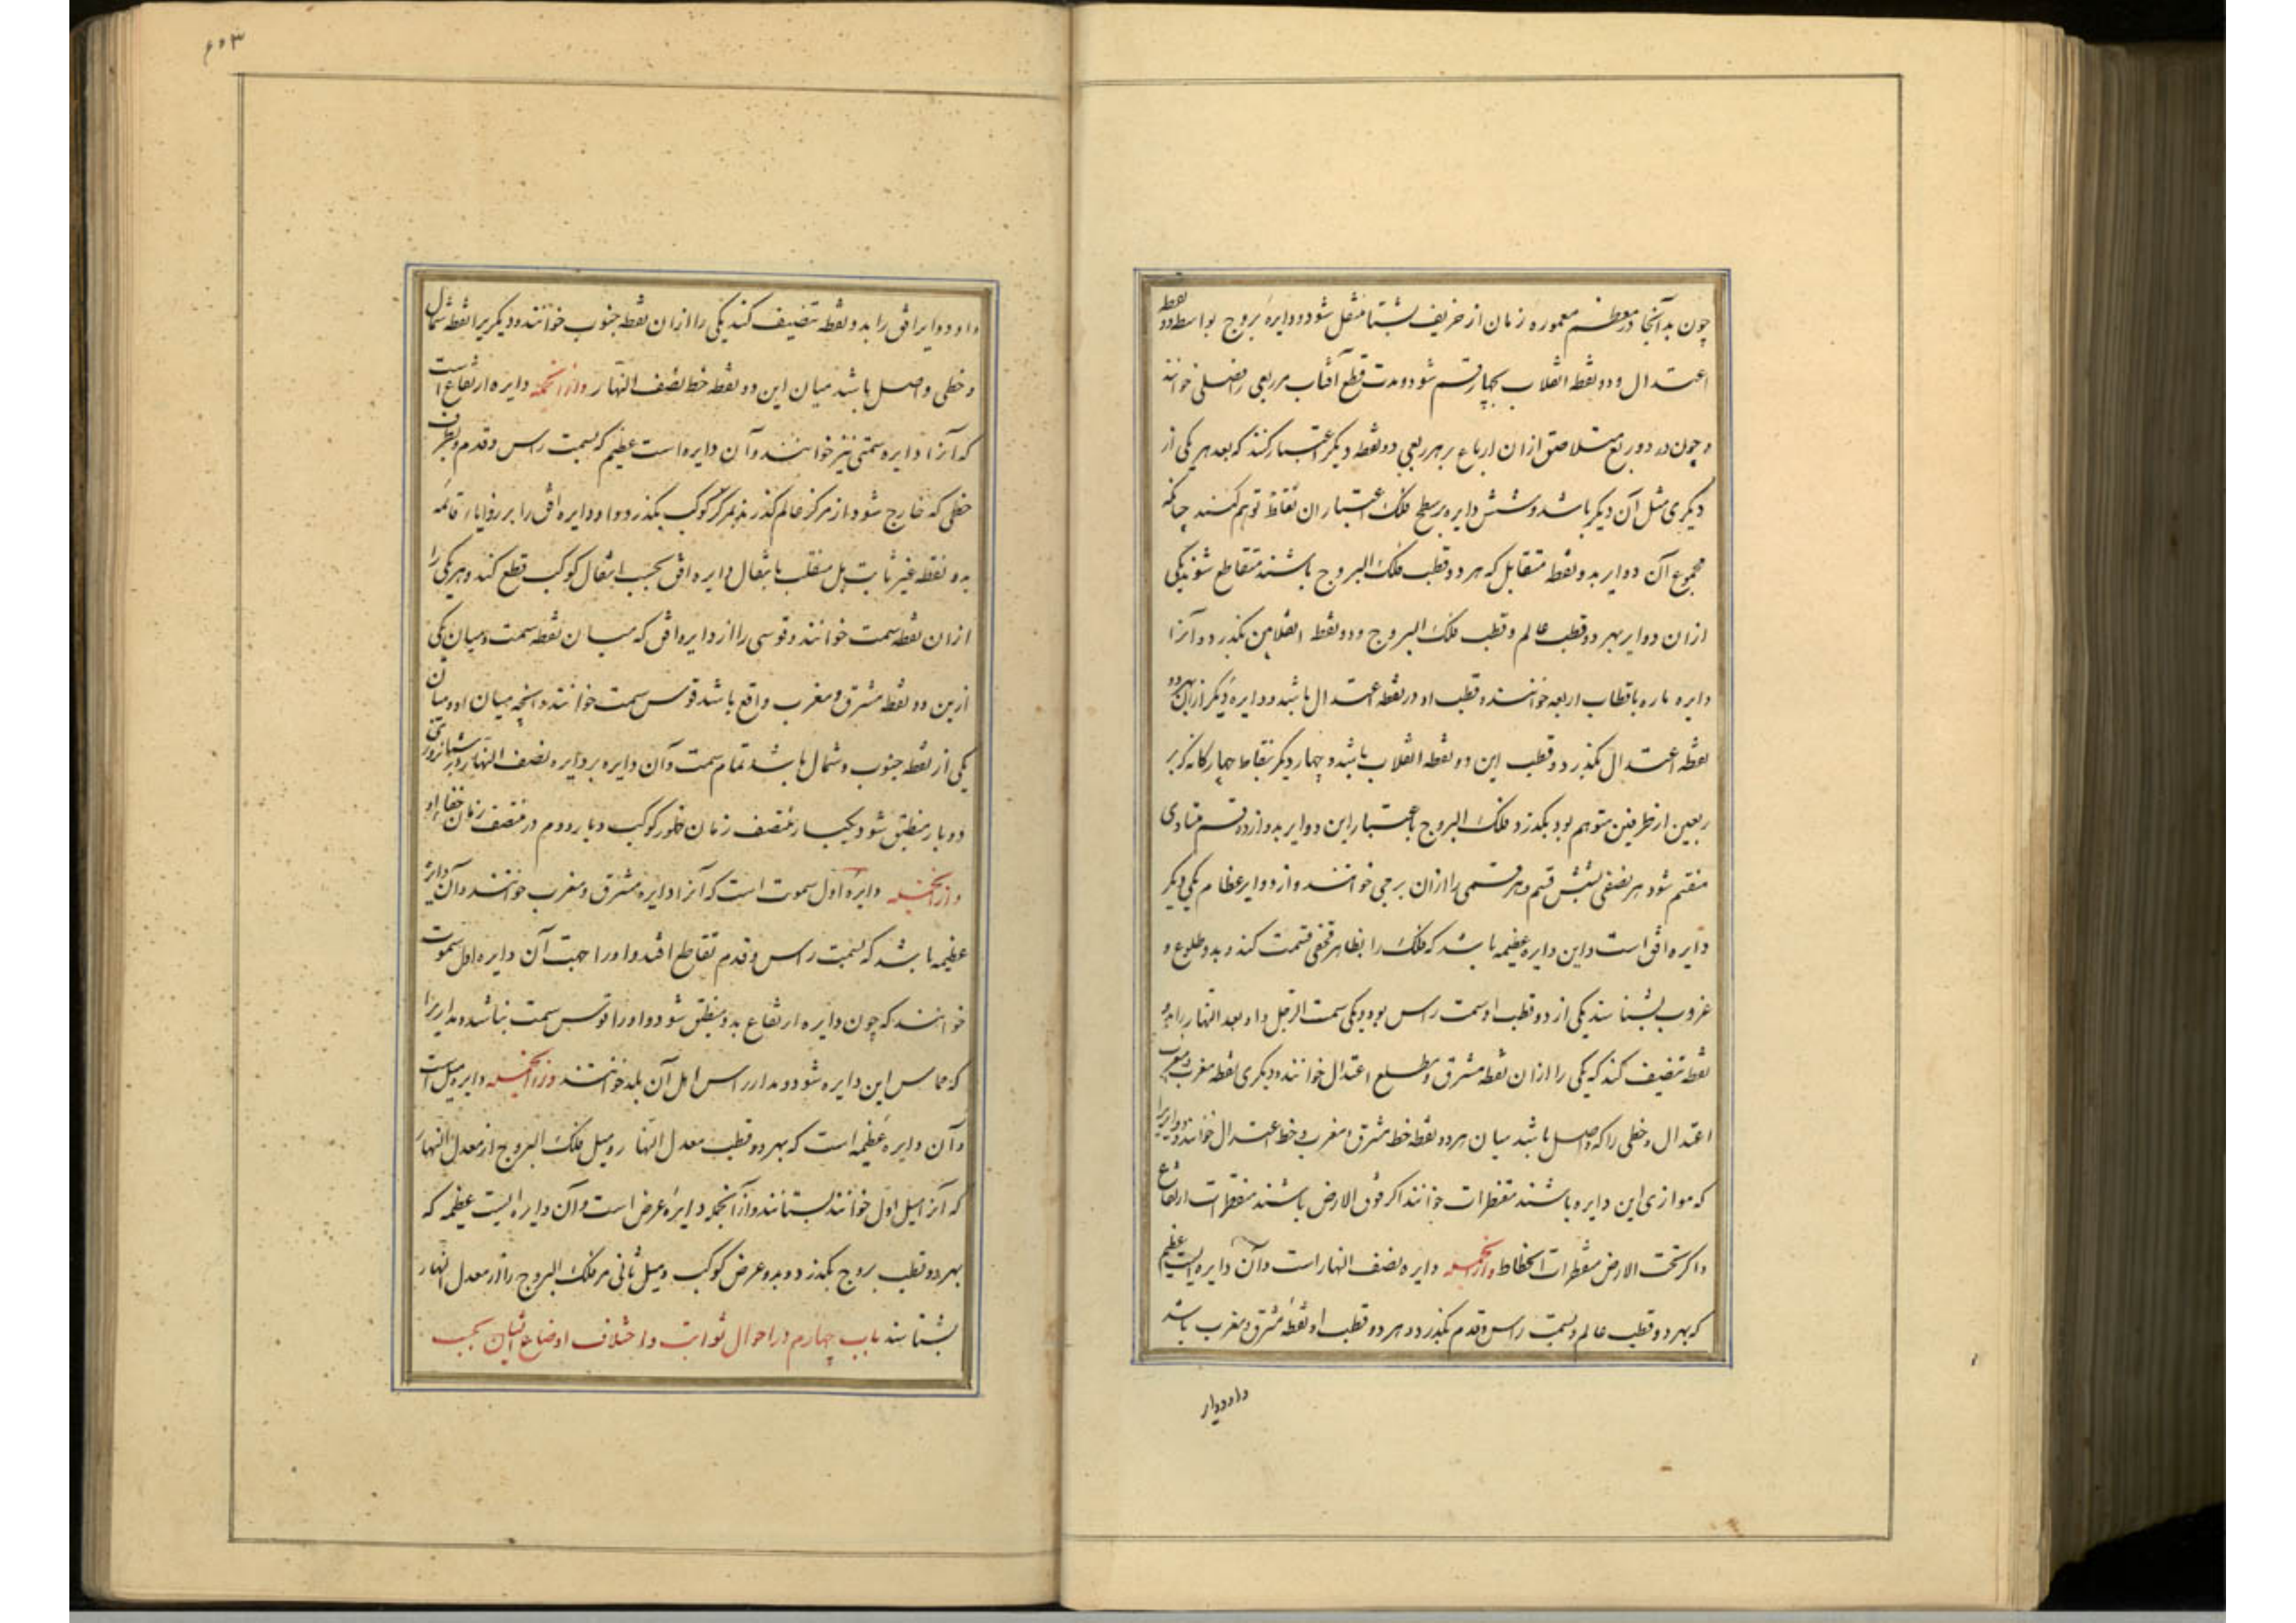 چون بدآنجا در معظم معموره زمان از خریف بشتا منتقل شود و دایره بروج بواسطه دو نقطه
اعتدال و دو نقطه انقلاب بچهار قسم شود و مدت قطع آفتاب هر ربعی را فصلی خوانند
و چون در دو ربع متلاصق ازان ارباع بر هر ربعی دو نقطه دیگر اعتبار کنند که بعد هر یکی از
دیگری مثل آن دیگر باشد و شش دایره بر سطح فلک باعتبار ان نقاط توهم کنند چنانکه
مجموع آن دوایر بدو نقطه متقابل که هر دو قطب فلک البروج باشند متقاطع شوند یکی
ازان دوایر بهر دو قطب عالم و قطب فلک البروج و دو نقطه انقلابین بگذرد و آنرا
دایره ماره باقطاب اربعه خوانند و قطب او دو نقطه اعتدال باشد و دایره دیگر ازان بهر دو
نقطه اعتدال بگذرد و قطب این دو نقطه انقلاب باشد و چهار دیگر بنقاط چهارگانه که بر
ربعین از طرفین متوهم بود بگذرد و فلک البروج باعتبار این دوایر بدوازده قسم متساوی
منقسم شود هر نصفی بشش قسم و هر قسمی را ازان برجی خوانند و از دوایر عظام یکی دیگر
دایره افق است و این دایره عظیمه باشد که فلک را بظاهر و خفی قسمت کند و بدو طلوع و
غروب بشناسند یکی از دو قطب او سمت راس بود و یکی سمت الرجل و او معدل النهار را بدو
نقطه تنصیف کند که یکی را ازان نقطه مشرق و مطلع اعتدال خوانند و دیگری نقطه مغرب و مغیب
اعتدال و خطی را که واصل باشد میان هر دو نقطه خط مشرق و مغرب و خط اعتدال خوانند و دوایر را
که موازی این دایره باشند مقنطرات خوانند اگر فوق الارض باشند مقنطرات ارتفاع
و اگر تحت الارض مقنطرات انحطاط وازانجمله دایره نصف النهار است و آن دایره ایست عظیم
که بهر دو قطب عالم و بسمت راس و قدم بگذرد و هر دو قطب او نقطه مشرق و مغرب باشد
و او دوایر
۶۰۳
و او دوایر افق را بدو نقطه تنصیف کند یکی را ازان نقطه جنوب خوانند و دیگریرا نقطه شمال
و خطی واصل باشد میان این دو نقطه خط نصف النهار وازانجمله دایره ارتفاع است
که آنرا دایره سمتی نیز خوانند و آن دایره است عظیم که بسمت راس و قدم و بطرف
خطی که خارج شود از مرکز عالم گذرنده بمرکز کوکب بگذرد و او دایره افق را بر زوایاء قائمه
بدو نقطه غیر ثابت بل منقلب بانتقال دایره افق بحسب انتقال کوکب قطع کند و هر یکی را
ازان نقطه سمت خوانند و قوسی را از دایره افق که میان نقطه سمت و میان یکی
ازین دو نقطه مشرق و مغرب واقع باشد قوس سمت خوانند و آنچه میان او و میان
یکی از نقطه جنوب و شمال باشد تمام سمت و آن دایره بر دایره نصف النهار در شبانروزی
دو بار منطبق شود یکبار در منتصف زمان ظهور کوکب و بار دوم در منتصف زمان خفاء او
وازانجمله دایره اول سموت است که آنرا دایره مشرق و مغرب خوانند و آن دایره
عظیمه باشد که بسمت راس و قدم تقاطع افتد و او را جهت آن دایره اول سموت
خوانند که چون دایره ارتفاع بدو منطبق شود و او را قوس سمت نباشد و مداریرا
که مماس این دایره شود و مدار راس اهل آن بلد خوانند وازانجمله دایره میل است
و آن دایره عظیمه است که بهر دو قطب معدل النهار و میل فلک البروج از معدل النهار
که آنرا میل اول خوانند بشناسند وازآنجمله دایره عرض است و آن دایره ایست عظیمه که
بهر دو قطب بروج بگذرد و بدو عرض کوکب و میل ثانی مر فلک البروج را از معدل النهار
بشناسند باب چهارم در احوال ثوابت و اختلاف اوضاع ایشان بحسب